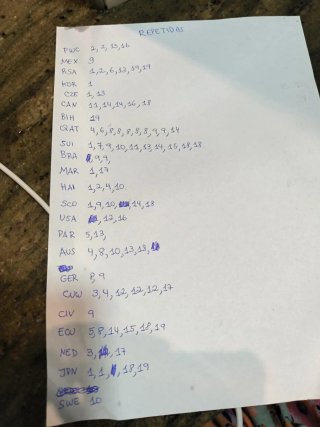 REPETIDAS
FWC 2, 3, 15, 16
MEX 9
RSA 1, 2, 6, 12, 19, 17
KOR 1
CZE 1, 13
CAN 11, 14, 14, 16, 18
BIH 19
QAT 4, 6, 8, 8, 8, 8, 8, 9, 9, 14
SUI 1, 7, 9, 10, 11, 13, 14, 15, 18, 18
BRA 9, 9,
MAR 1, 17
HAI 1, 2, 4, 10
SCO 1, 9, 10, 14, 18
USA 12, 16
PAR 5, 13,
AUS 4, 8, 10, 13, 13,
GER 8, 9
CUW 3, 4, 12, 12, 12, 17
CIV 9
ECU 5, 8, 14, 15, 18, 19
NED 3, 17
JPN 1, 1, 18, 19
SWE 10